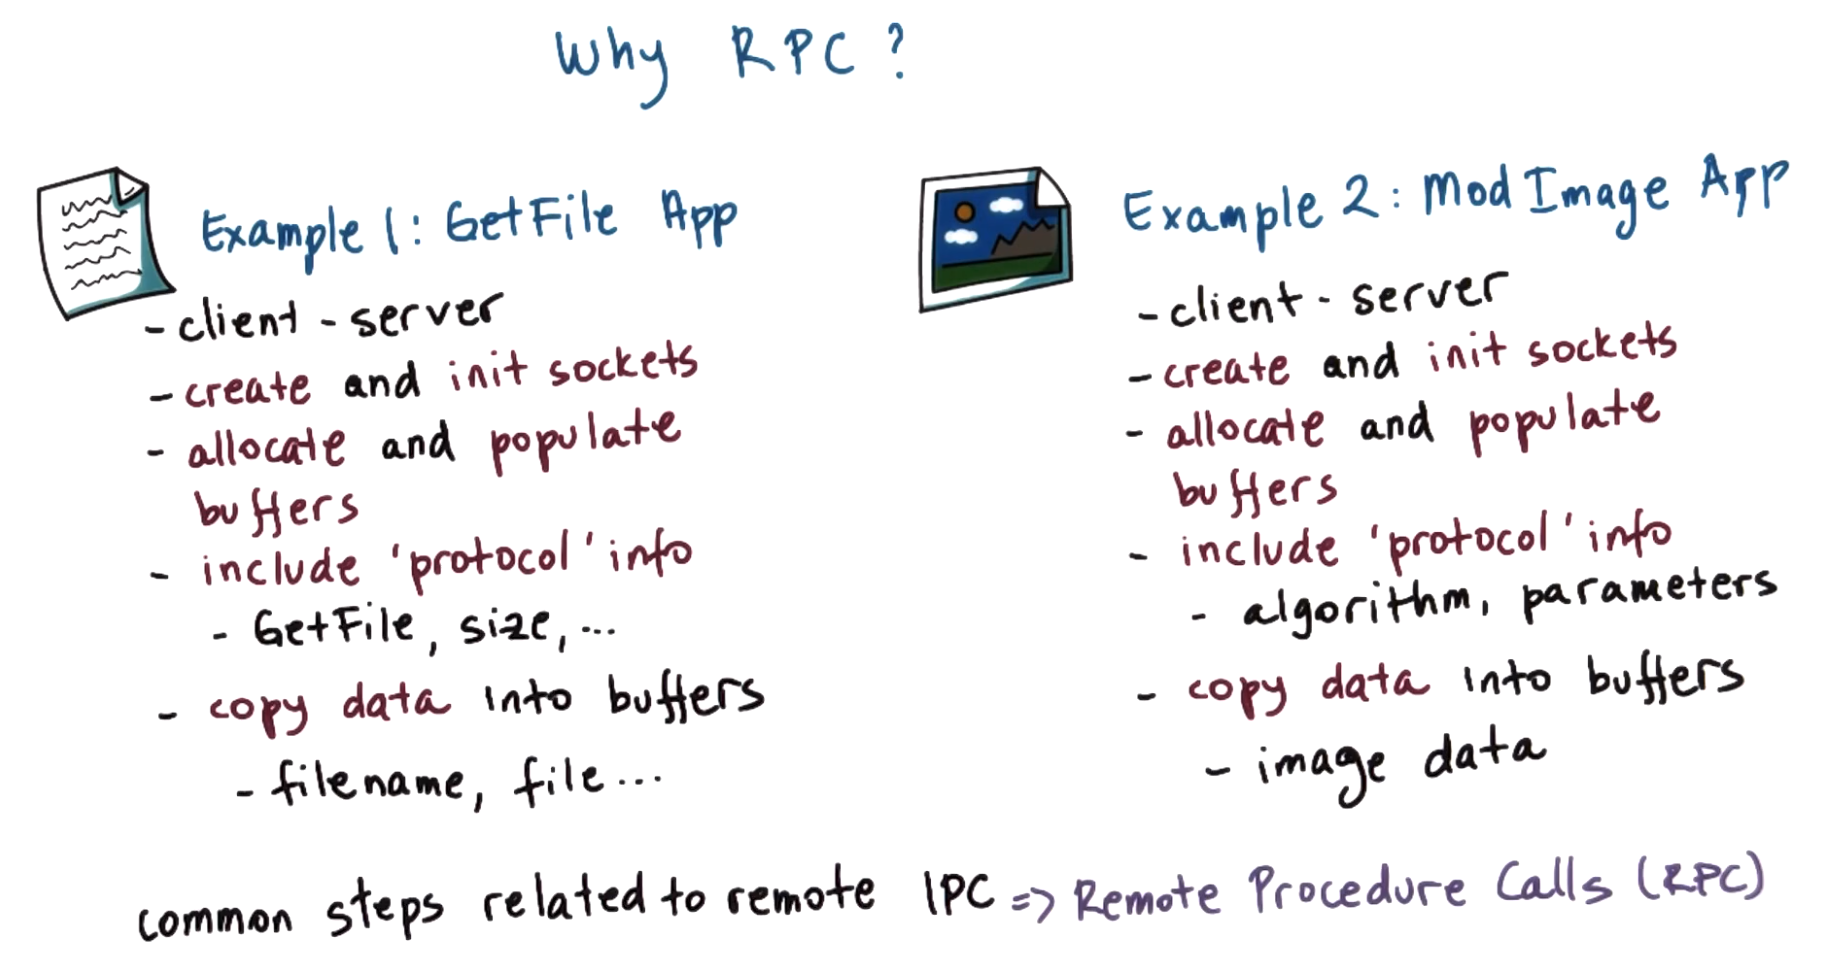 Why RPC?
Example 1: GetFile App
- client-server
- create and init sockets
- allocate and populate
buffers
- include 'protocol' info
- GetFile, size, ...
- copy data into buffers
- filename, file...
Example 2: Mod Image App
- client-server
- create and init sockets
- allocate and populate
buffers
- include 'protocol' info
- algorithm, parameters
- copy data into buffers
- image data
common steps related to remote IPC => Remote Procedure Calls (RPC)